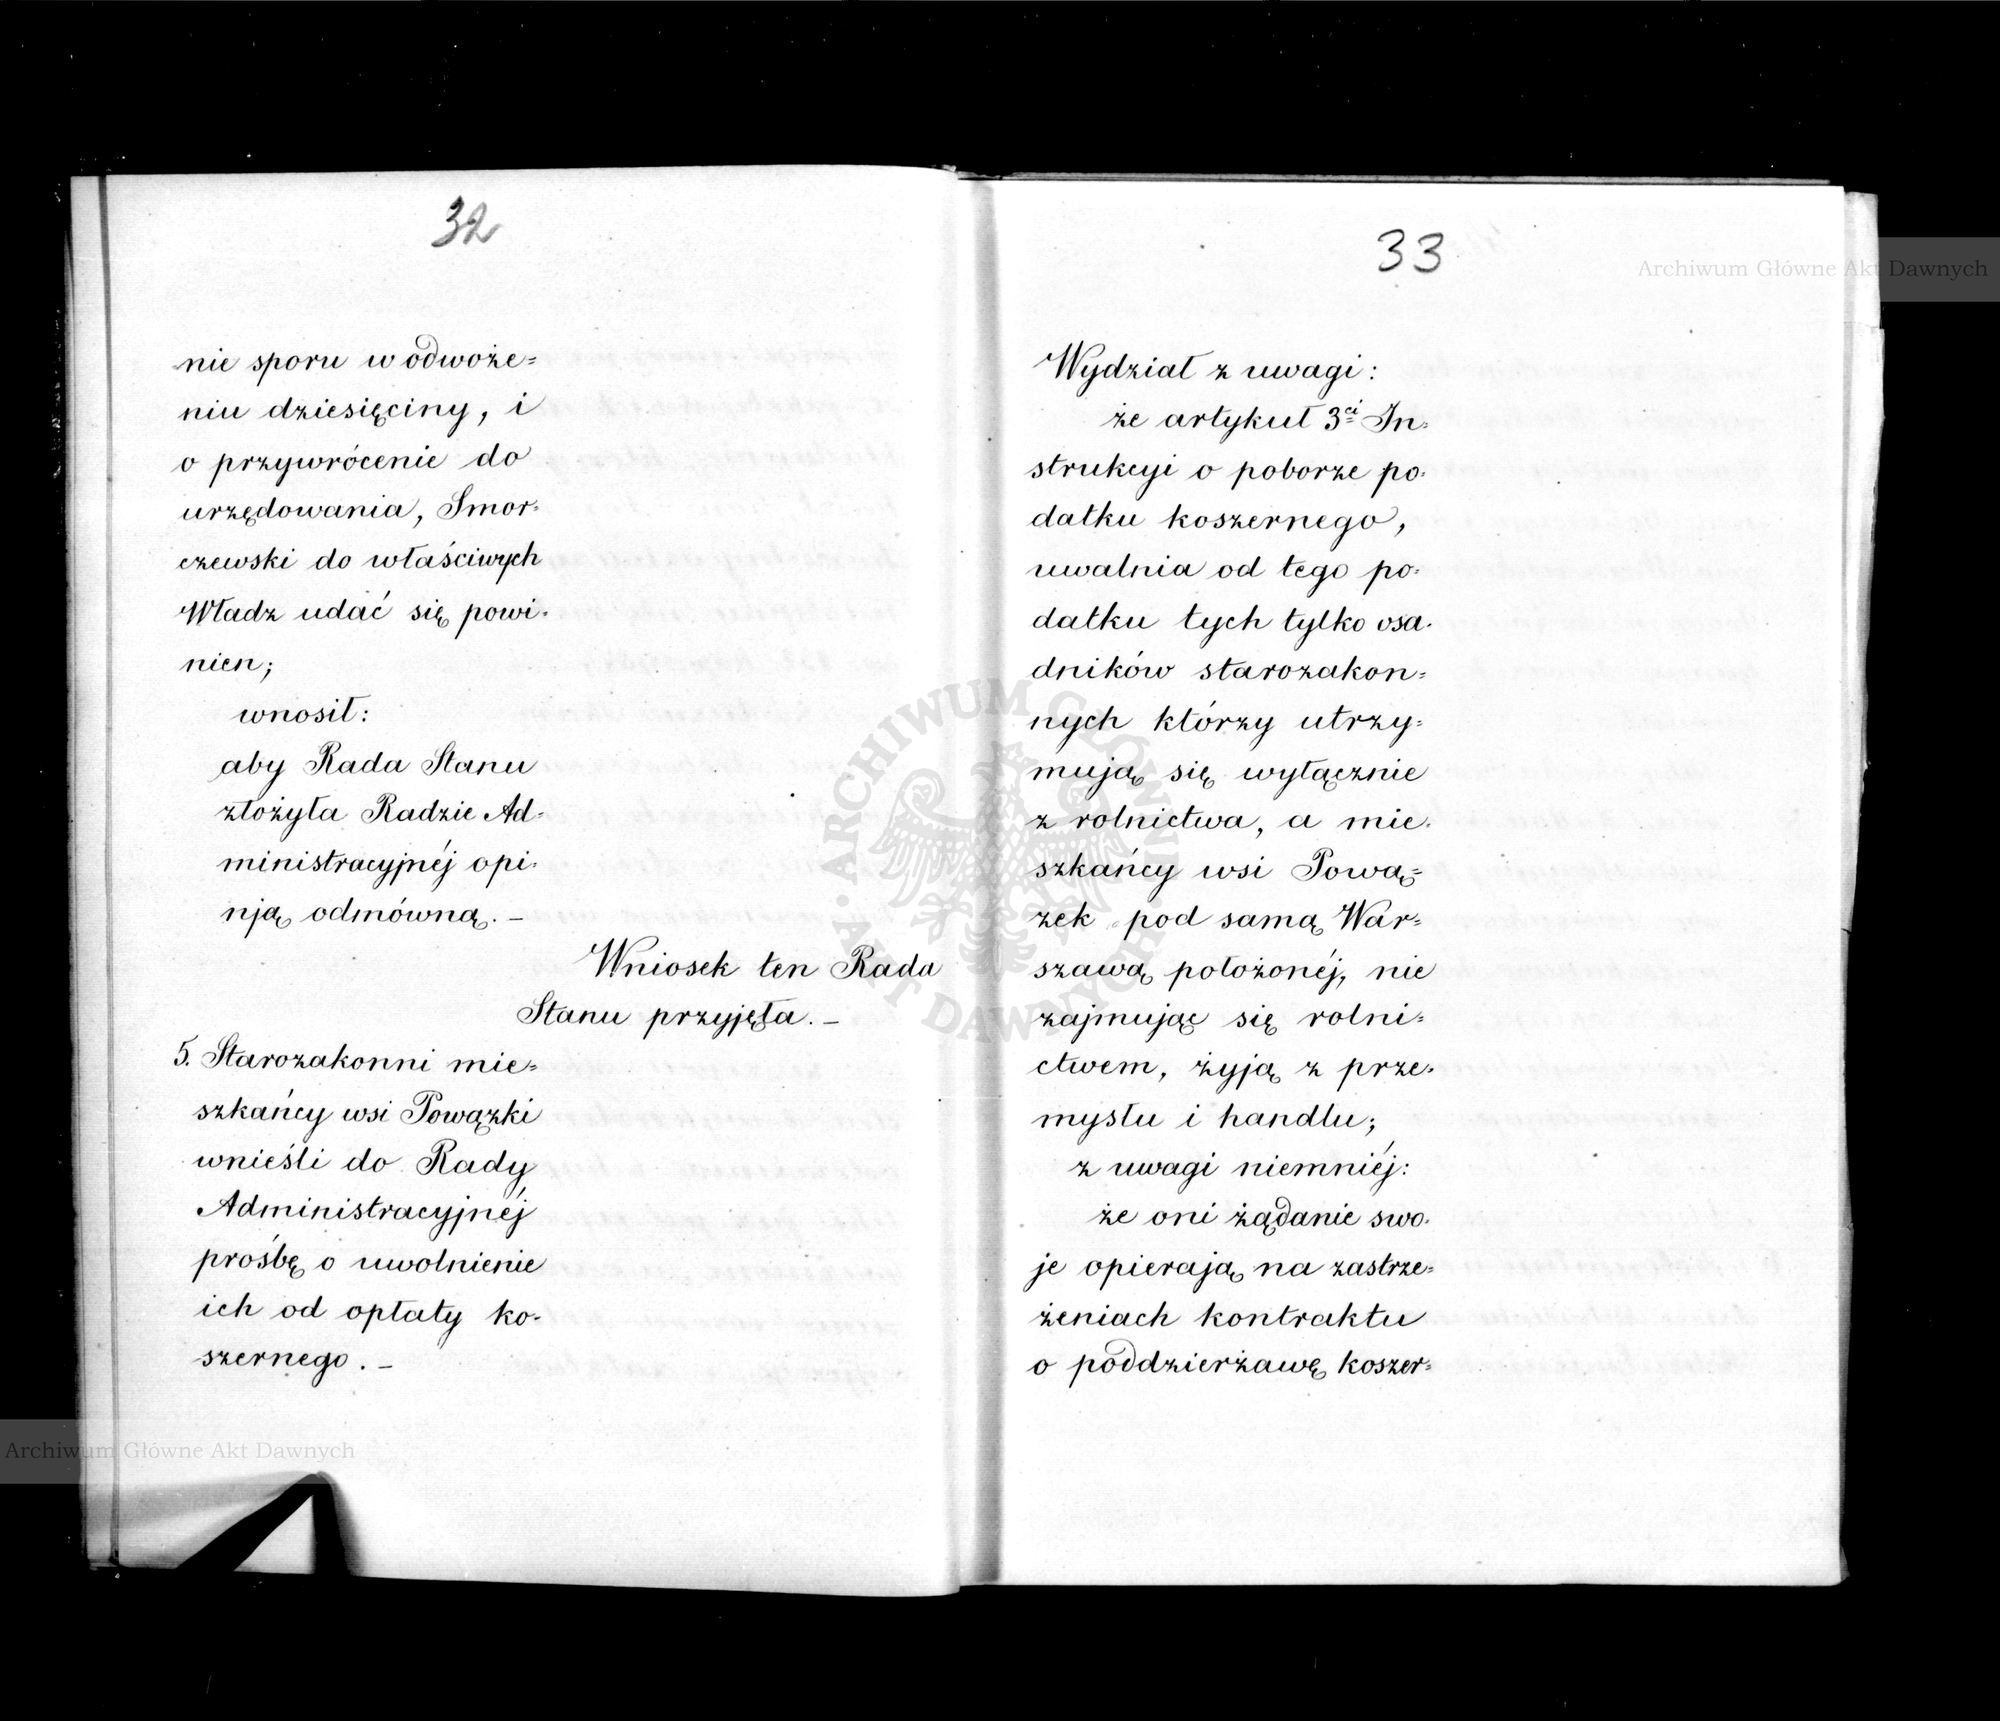 32
nie sporu w odwoże=
niu dziesięciny, i
o przywrócenie do
urzędowania, Smor=
czewski do właściwych
Władz udać się powi=
nien;
wnosił:
aby Rada Stanu
złożyła Radzie Ad=
ministracyjnéj opi=
nją odmówną. –
Wniosek ten Rada
Stanu przyjęła. –
5. Starozakonni mie=
szkańcy wsi Powązki
wnieśli do Rady
Administracyjnéj
prośbę o uwolnienie
ich od opłaty ko=
szernego. –
33
Wydział z uwagi:
że artykuł 3ci In=
strukcyi o poborze po=
datku koszernego,
uwalnia od tego po=
datku tych tylko osa=
dników starozakon=
nych którzy utrzy=
mują się wyłącznie
z rolnictwa, a mie=
szkańcy wsi Pową=
zek pod samą War=
szawą położonéj, nie
zajmując się rolni=
ctwem, żyją z prze=
mysłu i handlu;
z uwagi niemniéj:
że oni żądanie swo=
je opierają na zastrze=
żeniach kontraktu
o poddzierżawę koszer=
Archiwum Główne Akt Dawnych
Archiwum Główne Akt Dawnych
ARCHIWUM GŁÓWNE AKT DAWNYCH